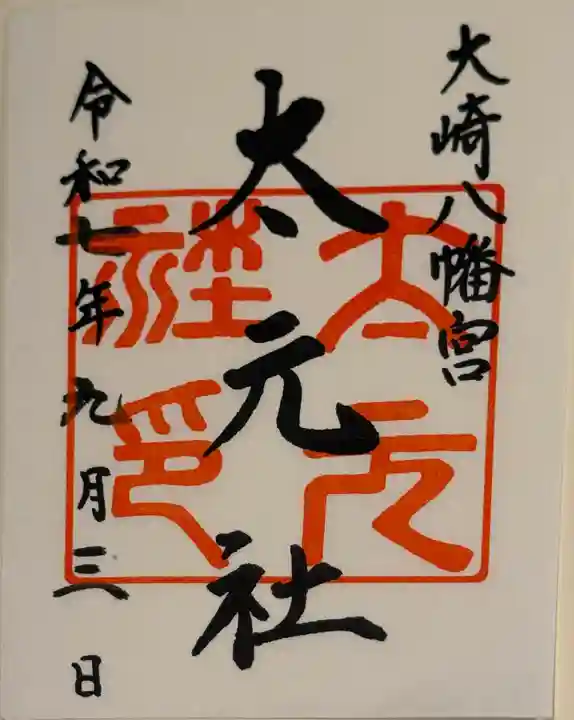 大崎八幡宮
太元社
太元社印
令和七年九月三日